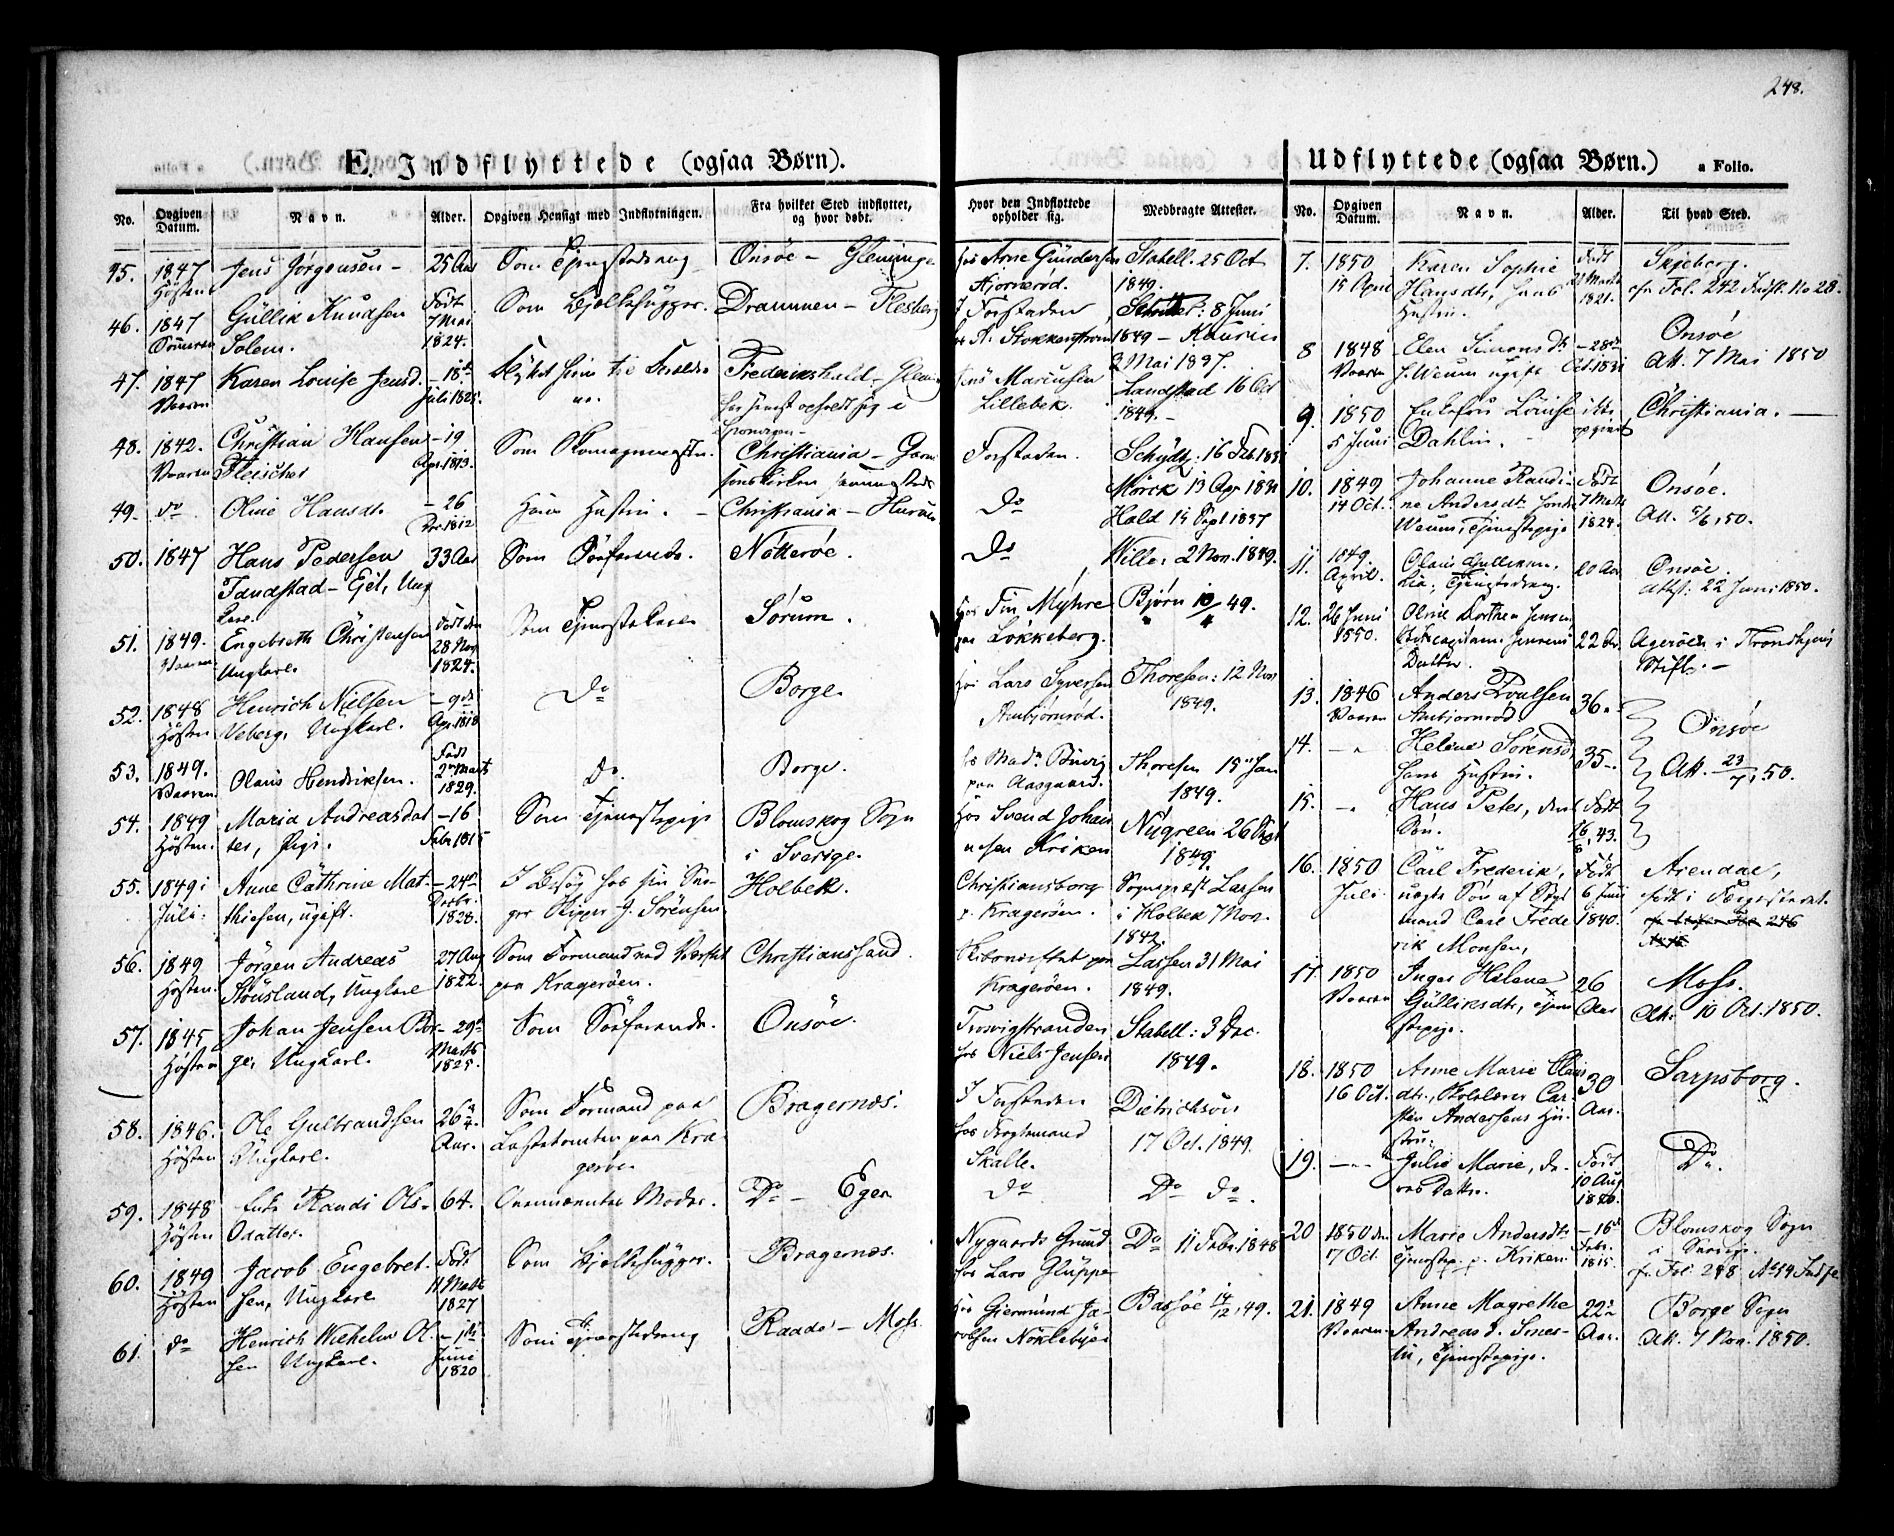 248.
E. Indflyttede (ogsaa Børn).
No. Opgiven Datum. Navn. Alder. Opgiven Hensigt med Indflytningen. Fra hvilket Sted indflyttet, og hvor døbt. Hvor den Indflyttede opholder sig. Medbragte Attester.
45. 1847 Høsten Jens Jørgensen - 25 Aar Som Tjenestedreng Onsøe - Glemminge hos Arne Gundersen Hjørnerød. Stabell. 25 Oct 1849.
46. 1847 Sommeren Gullik Knudsen Solem. Født 7 Mai 1824. Som Bjelkehugger. Drammen - Flesberg I Forstaden 8 Juni 1849 - 2 Mai 1837.
47. 1847 Vaaren Karen Louise Jensd. - 18de Juli 1825. Frederikshald - Jens Marensen Lillebek. Landstad 16 Oct 1849. -
48. 1842. Vaaren Christian Hansen Fleischer - 19 Apr. 1813. Som Skomagermester. Christiania - Forstaden. Schydtz: 16 Feb.
49. do Oline Hansd. - 26 1812 Hans Hustru. - Christiania - Do Mørck 13 Apr 1831 Hald 15 Sept 1837
50. 1847 Hans Pedersen Tandstad - Eje, Ungkarl. 33 Aar Som Søfarende. Nøtterøe. Do Wille: 2 Nov. 1849.
51. 1849. Vaaren Engebreth Christensen Ungkarl. Født den 28 Nov 1824. Som Tjenestekarl Sørum. Hos Tin. Myhre paa Løkkeberg. Bjørn 49.
52. 1848 Høsten Henrich Nielsen Veberg, Ungkarl. - 9de Apr. 1818 Do Borge. Hos Lars Syversen Ambjørnsrød. Thoresen: 12 Nov 1849.
53. 1849. Vaaren Olaus Hendriksen. Født 2den Marts 1829. Do. Borge. paa Aasgaard. Thoresen 15 Jan 1849.
54. 1849 Høsten. Maria Andreasdatter, Pige. - 16 Febr. 1815 Som Tjenestepige Blomskog Sogn i Sverige. Hos Svend Johannesen Kriken Nugreen 26 Sept 1849.
55. 1849 i Juli. Anne Cathrine Mathiesen, ugift. - 24de 1828. I Besøg hos sin Svoger Skipper J. Sørensen Holbek. Christiansborg p. Kragerøen. Sognepræst Lassen i Holbek 7 Nov. 1842.
56. 1849 Høsten. Jørgen Andreas Stousland, Ungkarl 27 Aug 1822. Som Formand ved Værftet paa Kragerøen. Christianssand. paa Kragerøen. Lassen 31 Mai 1849.
57. 1845 Høsten Johan Jensen Borge, Ungkarl. - 29de Marts 1825. Som Søfarende. Onsøe. Trosvigstranden hos Niels Jensen Stabell: 3 Dec. 1849.
58. 1846. Høsten Ole Gulbrandsen Ungkarl. 26 Aar. Som Formand paa Lastetomten paa Kragerøe. Bragernæs. I Forstaden hos Fogtmand Skalle. Dietrichson 17 Oct. 1849.
59. 1848 Høsten Enke Randi Olsdatter 64. Ovennævntes Moder. Do - Eger Do Do do.
60. 1849 Høsten Jacob Engebretsen, Ungkarl Født 11 Marts 1827 Som Bjelkehugger. Bragernæs. Nygaards Grund hos Lars Gluppe Do 11 Febr. 1848
61. do Henrich Wilhelm Olsen Ungkarl. - 1ste Juni 1820 Som Tjenestedreng Raade - Moss. Hos Gjermund Jacobsen Nøklebye Bassøe 14/12, 49.
Udflyttede (ogsaa Børn.) a Folio.
No. Opgiven Datum. Navn. Alder. Til hvad Sted.
7. 1850 15 April Karen Sophie Hansdt, hans Hustru. Født 21 Marts 1821. Skjeberg. cfr. Fol. 242 Indfl. No 28.
8 1848 Vaaren Elen Simonsdt. J. Weum ugift - 28de Oct. 1831 Onsøe Att. 7 Mai 1850
9. 1850 5 Juni Enkefru Louise Dahlin. - ikke opgivet Christiania. -
10. 1849 14 Oct. Johanne Randine Andersdt. Weum, Tjenestepige Født 7 Marts 1824. Onsøe. Att. 5/6, 50.
11. 1849 April. Olaus Gulliksen. Lia, Tjenestedreng. 20 Aar Onsøe. Att. 22 Juni 1850.
12. 26 Juni 1850. Oline Dorthea Jensen Jensens Datter. 22 Aar. Agerøen i Trondhjems Stift. -
13. 1846 Vaaren Anders Poulsen Ambjørnrød 36. Onsøe Att. 23/7, 50.
14. - " Helene Sørensd. hans Hustru. 35 -
15. - " Hans Peter, deres Søn. Født 16/8, 43.
16. 1850 Juli Carl Frederik, uægte Søn af Styrmand Carl Frederik Monsen, Født 6 Juni 1840. Arendal, født i Færgestedet
17 1850 Vaaren Inger Helene Gulliksdt, Tjenestepige. 26 Aar Moss. Att. 10 Oct. 1850.
18. 1850 16 Oct. Anne Marie Clausdt., Skolelærer Carsten Andersens Hustru. 30 Aar. Sarpsborg.
19. - " Julie Marie, deres Datter. Født 10 Aug Do.
20 1850 den 7 Oct. Marie Andersdt. Tjenestep. p. Kriken - 16de Febr. 1815. Blomskog Sogn i Sverige. cfr. Fol. 248 No 54 Indfl.
21. 1849 Vaaren Anne Magrethe Andreasd. Tjenestepige. 22 Aar. Borge Sogn Att. 7 Nov. 1850.